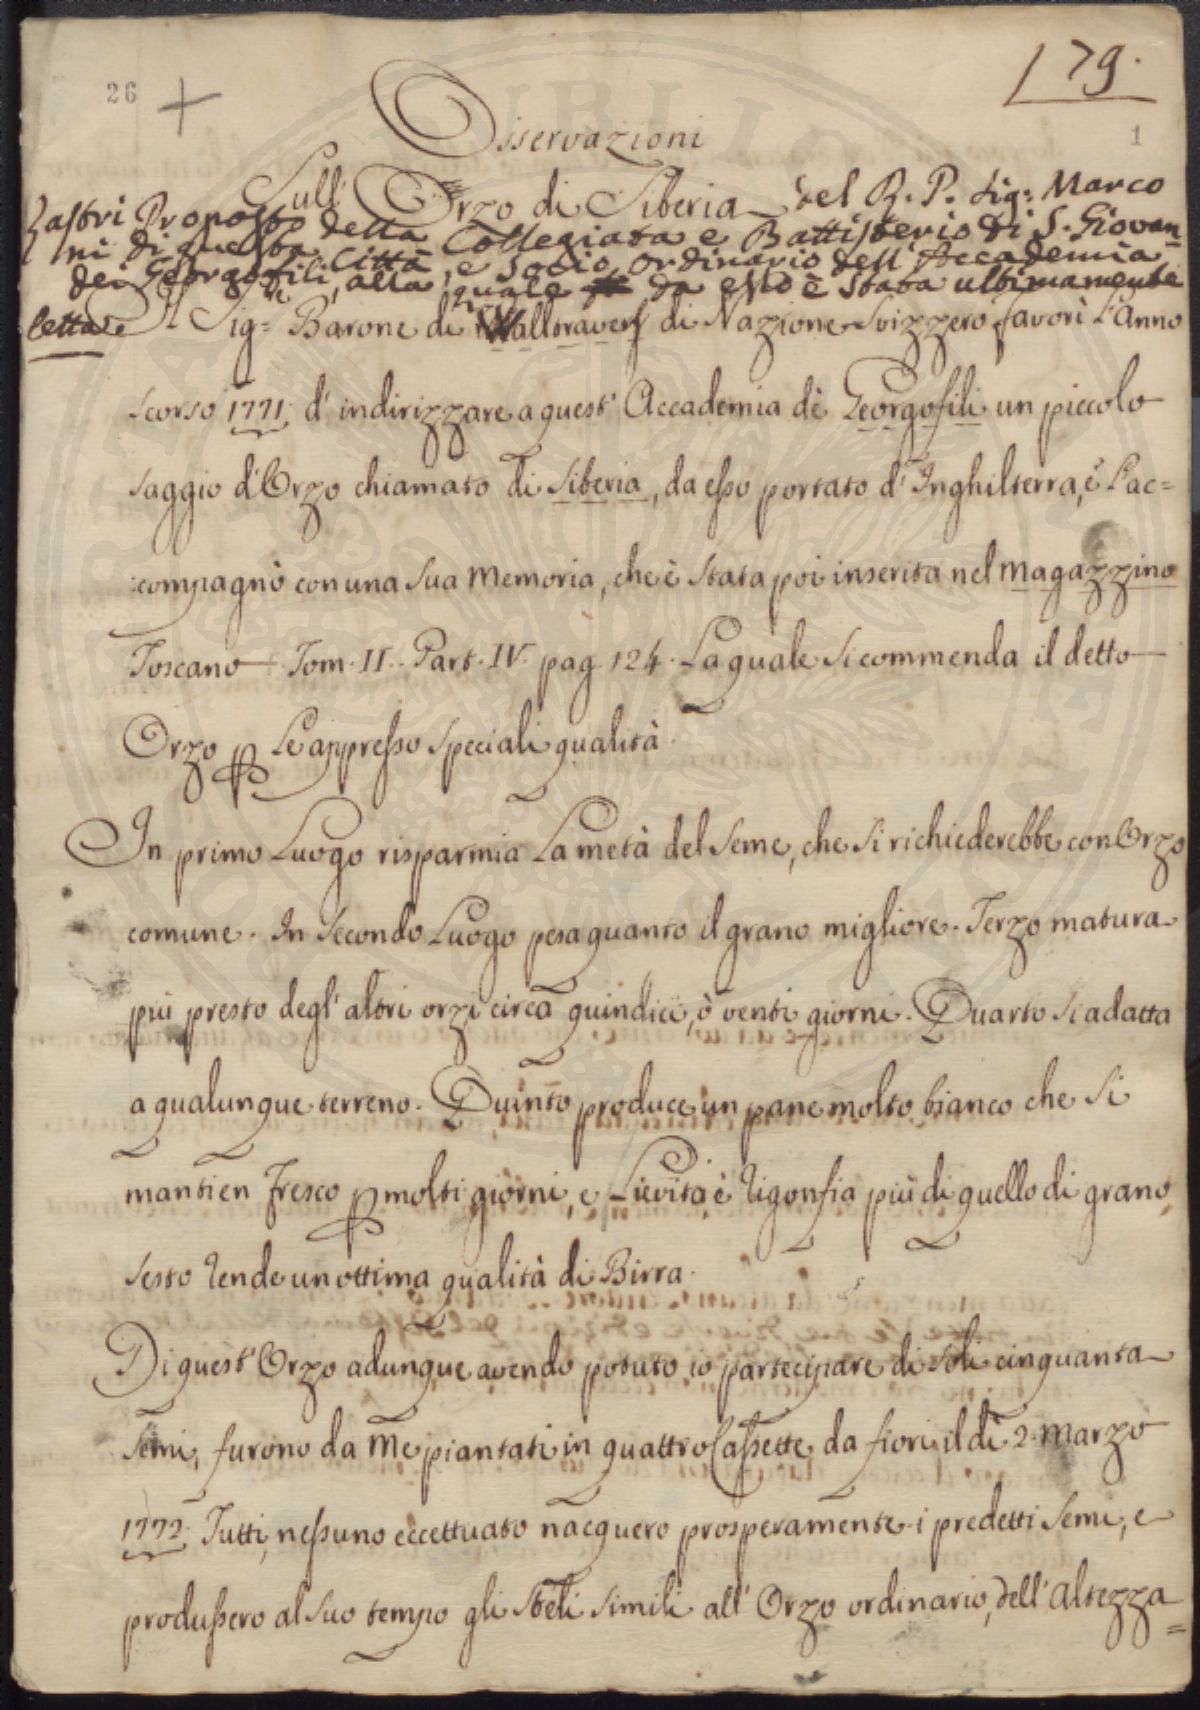 26
179.
1
Osservazioni
Sull' Orzo di Siberia del R. P. Sig: Marco
Lastri Proposto della Collegiata e Battisterio di S. Giovan-
ni di questa Città, e Socio ordinario dell' Accademia
dei Georgofili, alla quale da esso è stata ultimamente
letta.
Il Sig: Barone di Walltravers di Nazione Svizzero favorì l'Anno
scorso 1771. d' indirizzare a quest' Accademia dè Georgofili un piccolo
saggio d'Orzo chiamato di Siberia, da esso portato d' Inghilterra, è l'ac=
compagnò con una sua memoria, che è stata poi inserita nel magazzino
Toscano Tom. II. Part. IV. pag. 124. La quale si commenda il detto
Orzo ꝑ le appresso speciali qualità.
In primo Luogo risparmia la metà del seme, che si richiederebbe con Orzo
comune. In secondo Luogo pesa quanto il grano migliore. Terzo matura
più presto degl' altri orzi circa quindici, ò venti giorni. Quarto si adatta
a qualunque terreno. Quinto produce un pane molto bianco che si
mantien fresco ꝑ molti giorni, e Lievita, è rigonfia più di quello di grano,
sesto rende un ottima qualità di Birra.
Di quest' Orzo adunque avendo potuto io partecipare di soli cinquanta
semi, furono da me piantati in quattro Cassette da fiori il dì 2. marzo
1772. Tutti, nessuno eccettuato nacquero prosperamente i predetti semi, e
produssero al suo tempo gli steli simili all' Orzo ordinario, dell' altezza=